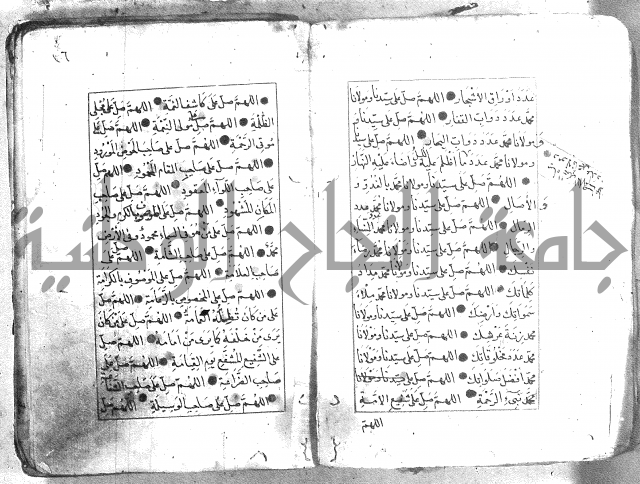 عدد اوراق الاشجار اللهم صل على سيدنا ومولانا
محمد عدد دواب القفار اللهم صل على سيدنا
ومولانا محمد عدد دواب البحار اللهم صل على سيدنا
ومولانا محمد عدد ما اظلم عليه الليل واضاء عليه النهار
اللهم صل على سيدنا ومولانا محمد بالغدو
والآصال اللهم صل على سيدنا ومولانا محمد عدد
الرمال اللهم صل على سيدنا ومولانا محمد عدد النساء
والرجال اللهم صل على سيدنا ومولانا محمد رضاء
نفسك اللهم صل على سيدنا ومولانا محمد مداد
كلماتك اللهم صل على سيدنا ومولانا محمد ملء
سمواتك وارضك اللهم صل على سيدنا ومولانا
محمد زنة عرشك اللهم صل على سيدنا ومولانا
محمد عدد مخلوقاتك اللهم صل على سيدنا ومولانا
محمد افضل صلواتك اللهم صل على سيدنا ومولانا
محمد نبي الرحمة اللهم صل على شفيع الامة
اللهم
٦
اللهم صل على كاشف الغمة اللهم صل على مجلي
الظلمة اللهم صل على مولي النعمة اللهم صل على
موتي الرحمة اللهم صل على صاحب الحوض المورود
اللهم صل على صاحب المقام المحمود اللهم صل
على صاحب اللواء المعقود اللهم صل على صاحب
المكان المشهود اللهم صل على الموصوف بالكرم والجود
اللهم صل على من هو في السماء محمود وفي الارض
محمد اللهم صل على صاحب الشامة اللهم صل على
صاحب العلامة اللهم صل على الموصوف بالكرامة
اللهم صل على المخصوص بالزعامة اللهم صل
على من كان تظله الغمامة اللهم صل على من كان
يرى من خلفه كما يرى من امامه اللهم صل
على الشفيع المشفع يوم القيامة اللهم صل على
صاحب الضراعة اللهم صل على صاحب الشفاعة
اللهم صل على صاحب الوسيلة اللهم صل
جامعة النجاح الوطنية